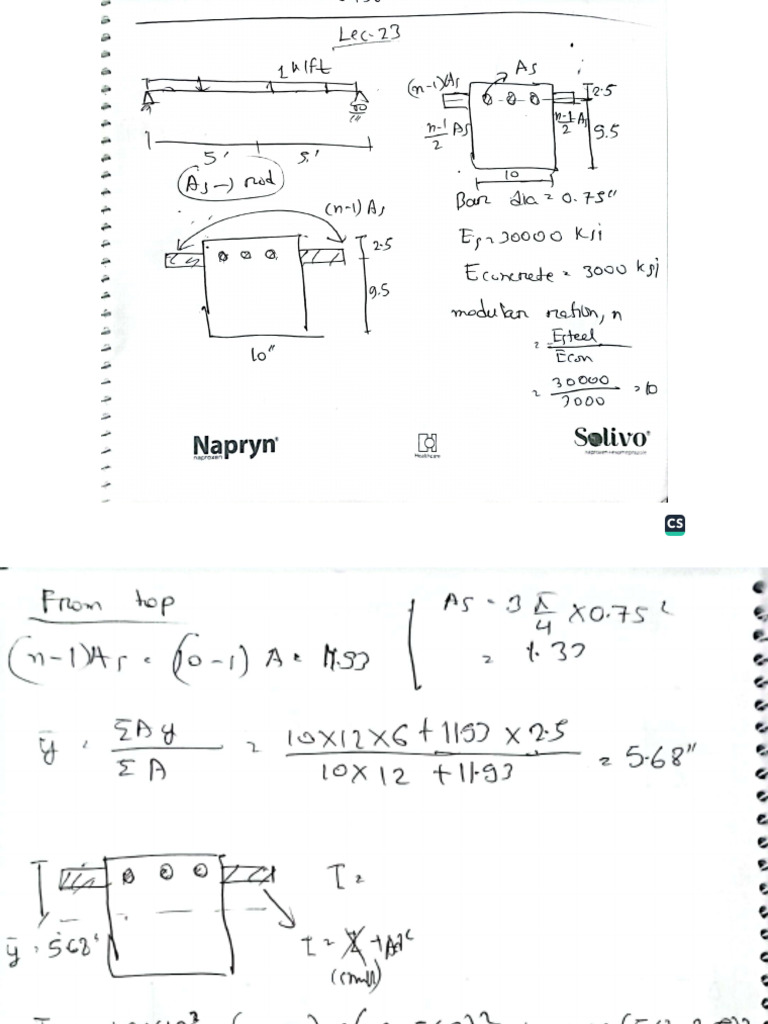 Lec-23
1 k/ft
5' 5'
As → rod
(n-1) As
2.5
9.5
10"
(n-1)As As
2.5
n-1/2 As n-1/2 As
9.5
10
Bar dia = 0.75"
Es = 30000 ksi
Econcrete = 3000 ksi
modular ration, n
= Esteel/Econ
= 30000/3000 = 10
Napryn
naproxen
Healthcare
Solivo
CS
From top
(n-1)As = (10-1) A = 11.93
As = 3 π/4 × 0.75²
= 1.33
ȳ = ΣAy/ΣA = 10×12×6 + 1193 × 2.5/10×12 + 11.93 = 5.68"
ȳ = 5.68"
I =
I = I + Ad²
(small)